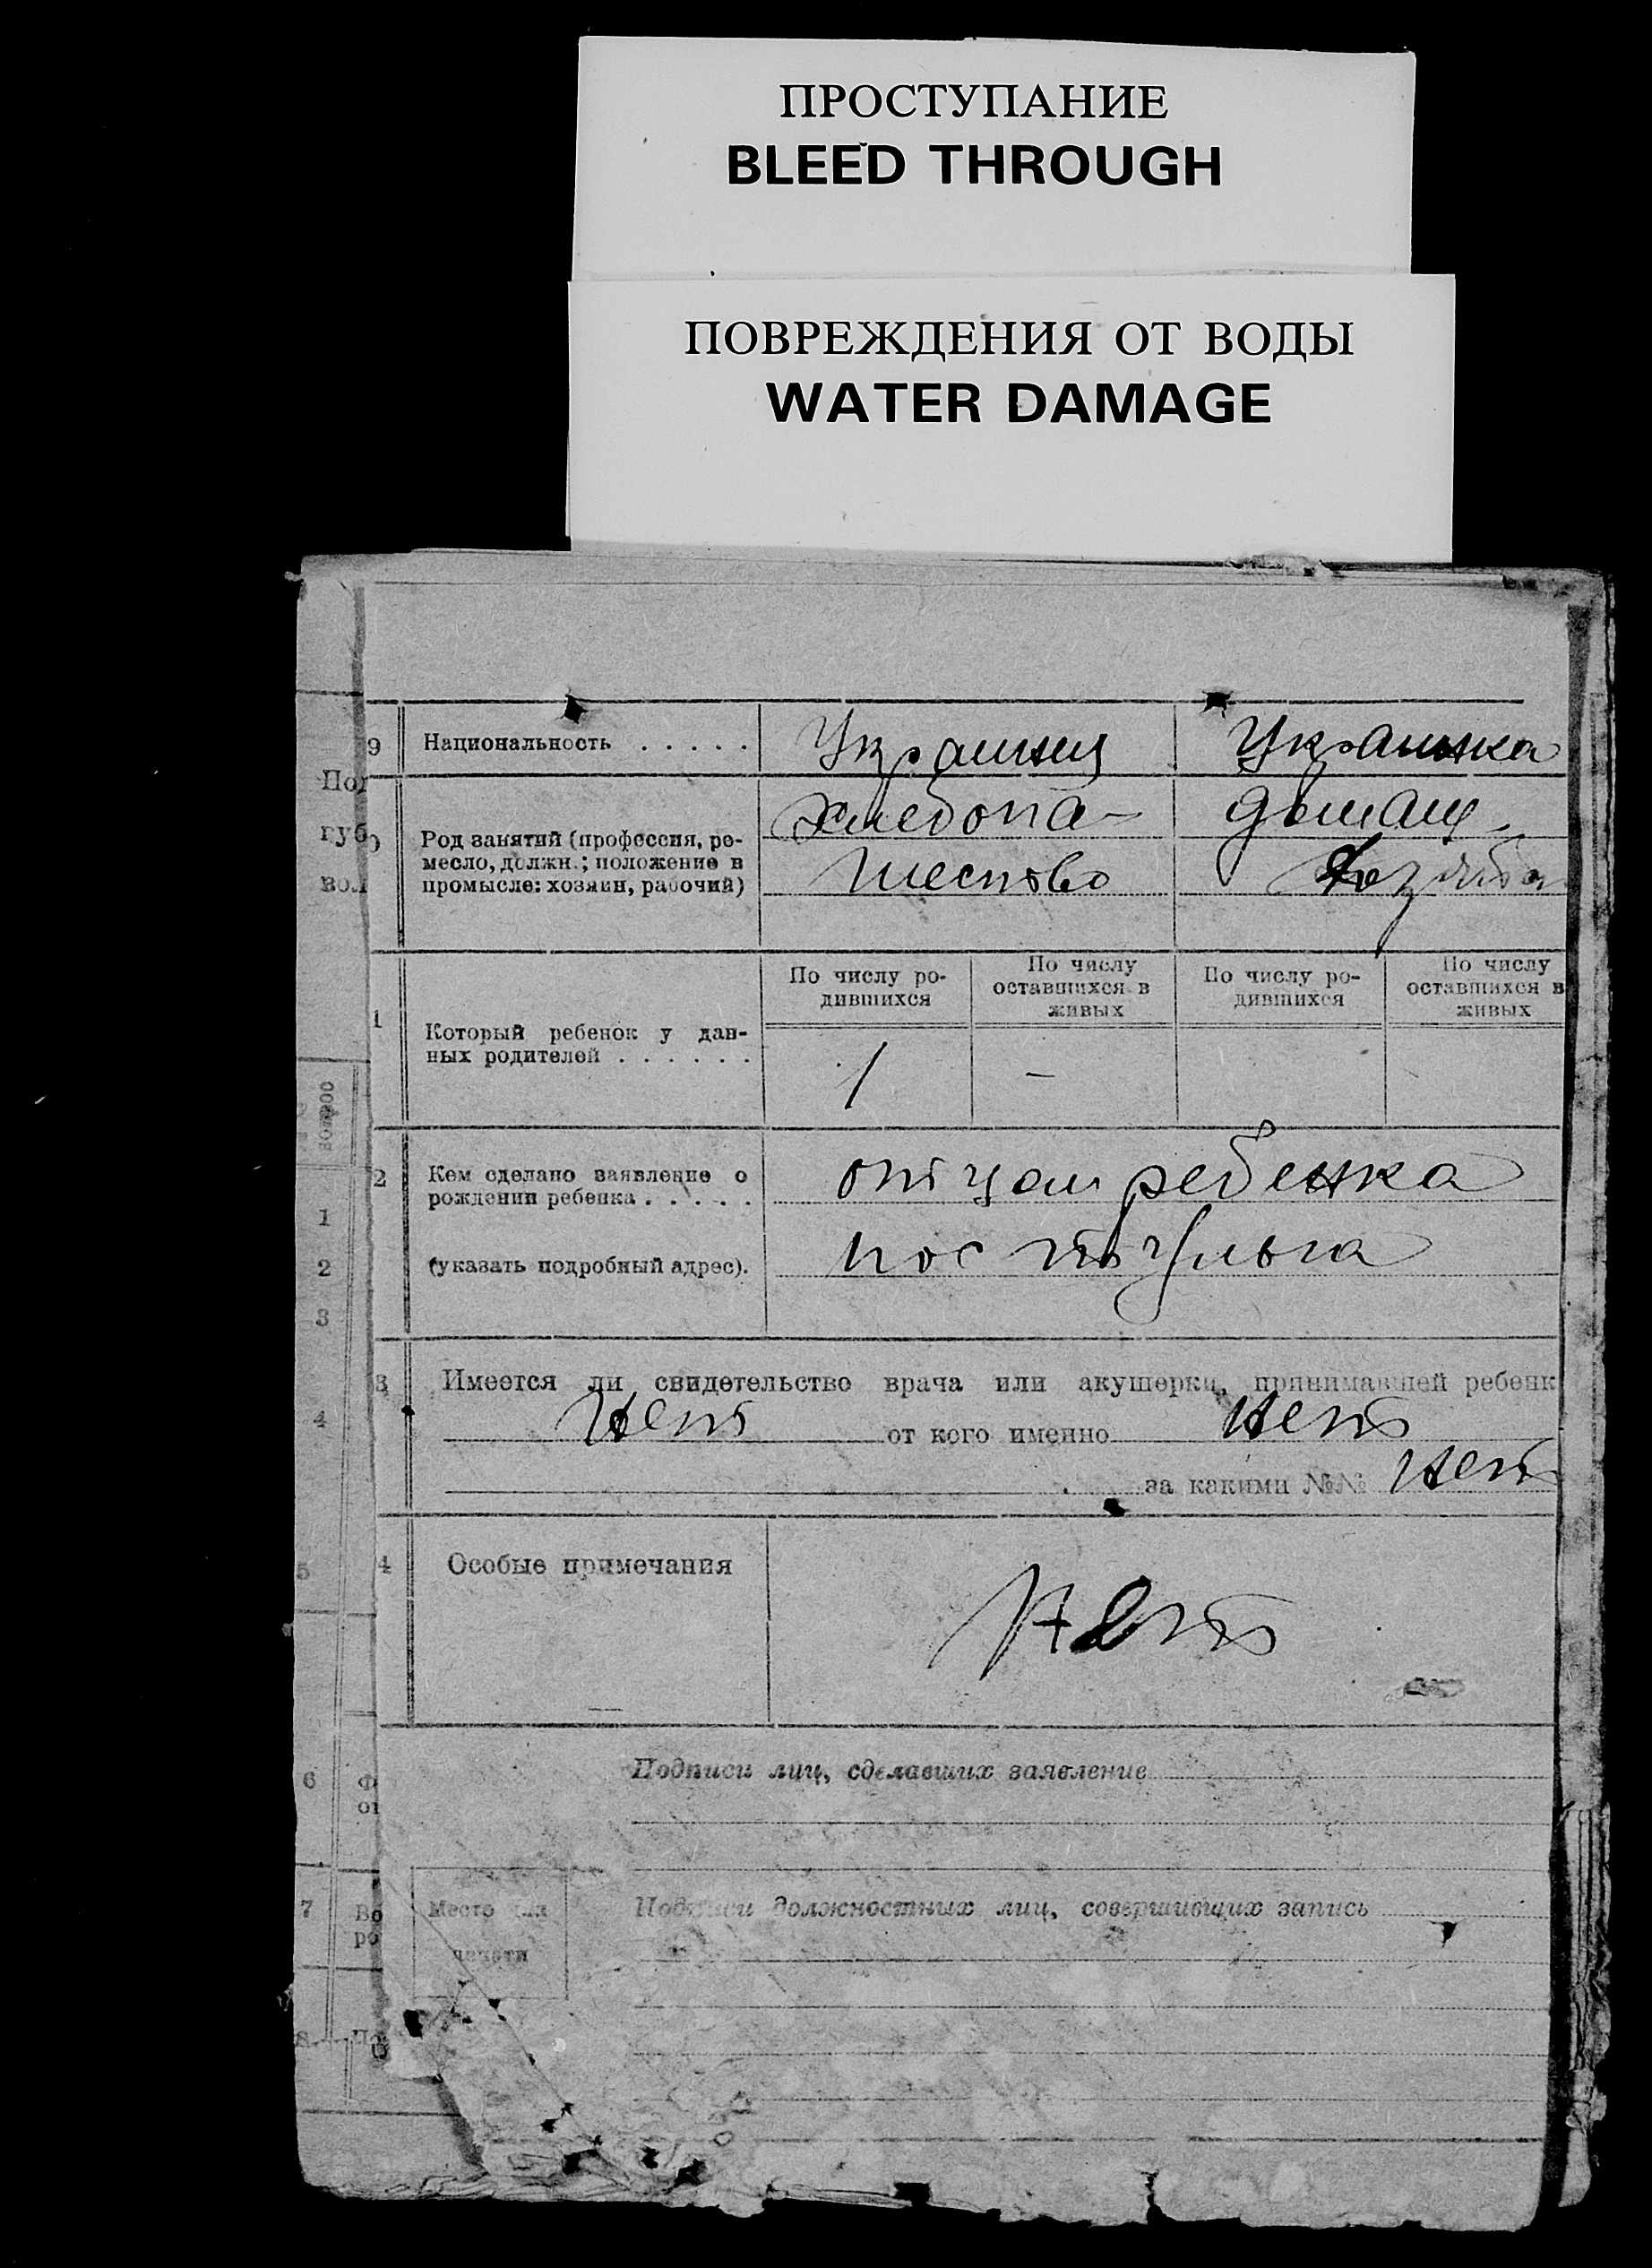 ПРОСТУПАНИЕ
BLEED THROUGH
ПОВРЕЖДЕНИЯ ОТ ВОДЫ
WATER DAMAGE
9 Национальность . . . . . Украинец Украинка
Род занятий (профессия, ре-
месло, должн.; положение в
промысле: хозяин, рабочий)
хлебопа-
шество
домаш.
1 Который ребенок у дан-
ных родителей . . . . . .
По числу ро-
дившихся
По числу
оставшихся в
живых
По числу ро-
дившихся
По числу
оставшихся в
живых
1 —
2 Кем сделано заявление о
рождении ребенка . . . . .
отцом ребенка
(указать подробный адрес).
пос
3 Имеется ли свидетельство врача или акушерки, принимавшей ребенк
Нет от кого именно Нет
за какими №№ Нет
4 Особые примечания Нет
Подписи лиц, сделавших заявление
Место для
печати
Подписи должностных лиц, совершивших запись
Под
губ
вол
1
2
3
4
5
6
7 Во
ро
8